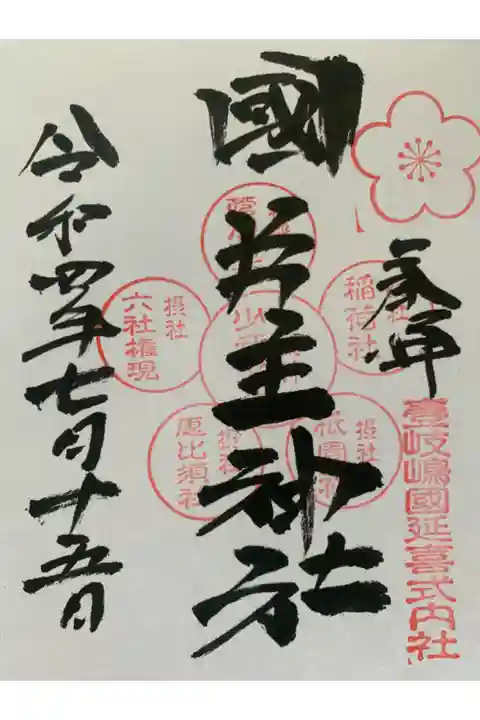 奉拝
壹岐嶋國延喜式内社
國片主神社
摂社
稲荷社
摂社
祇園社
摂社
恵比須社
摂社
六社権現
令和四年七月十五日